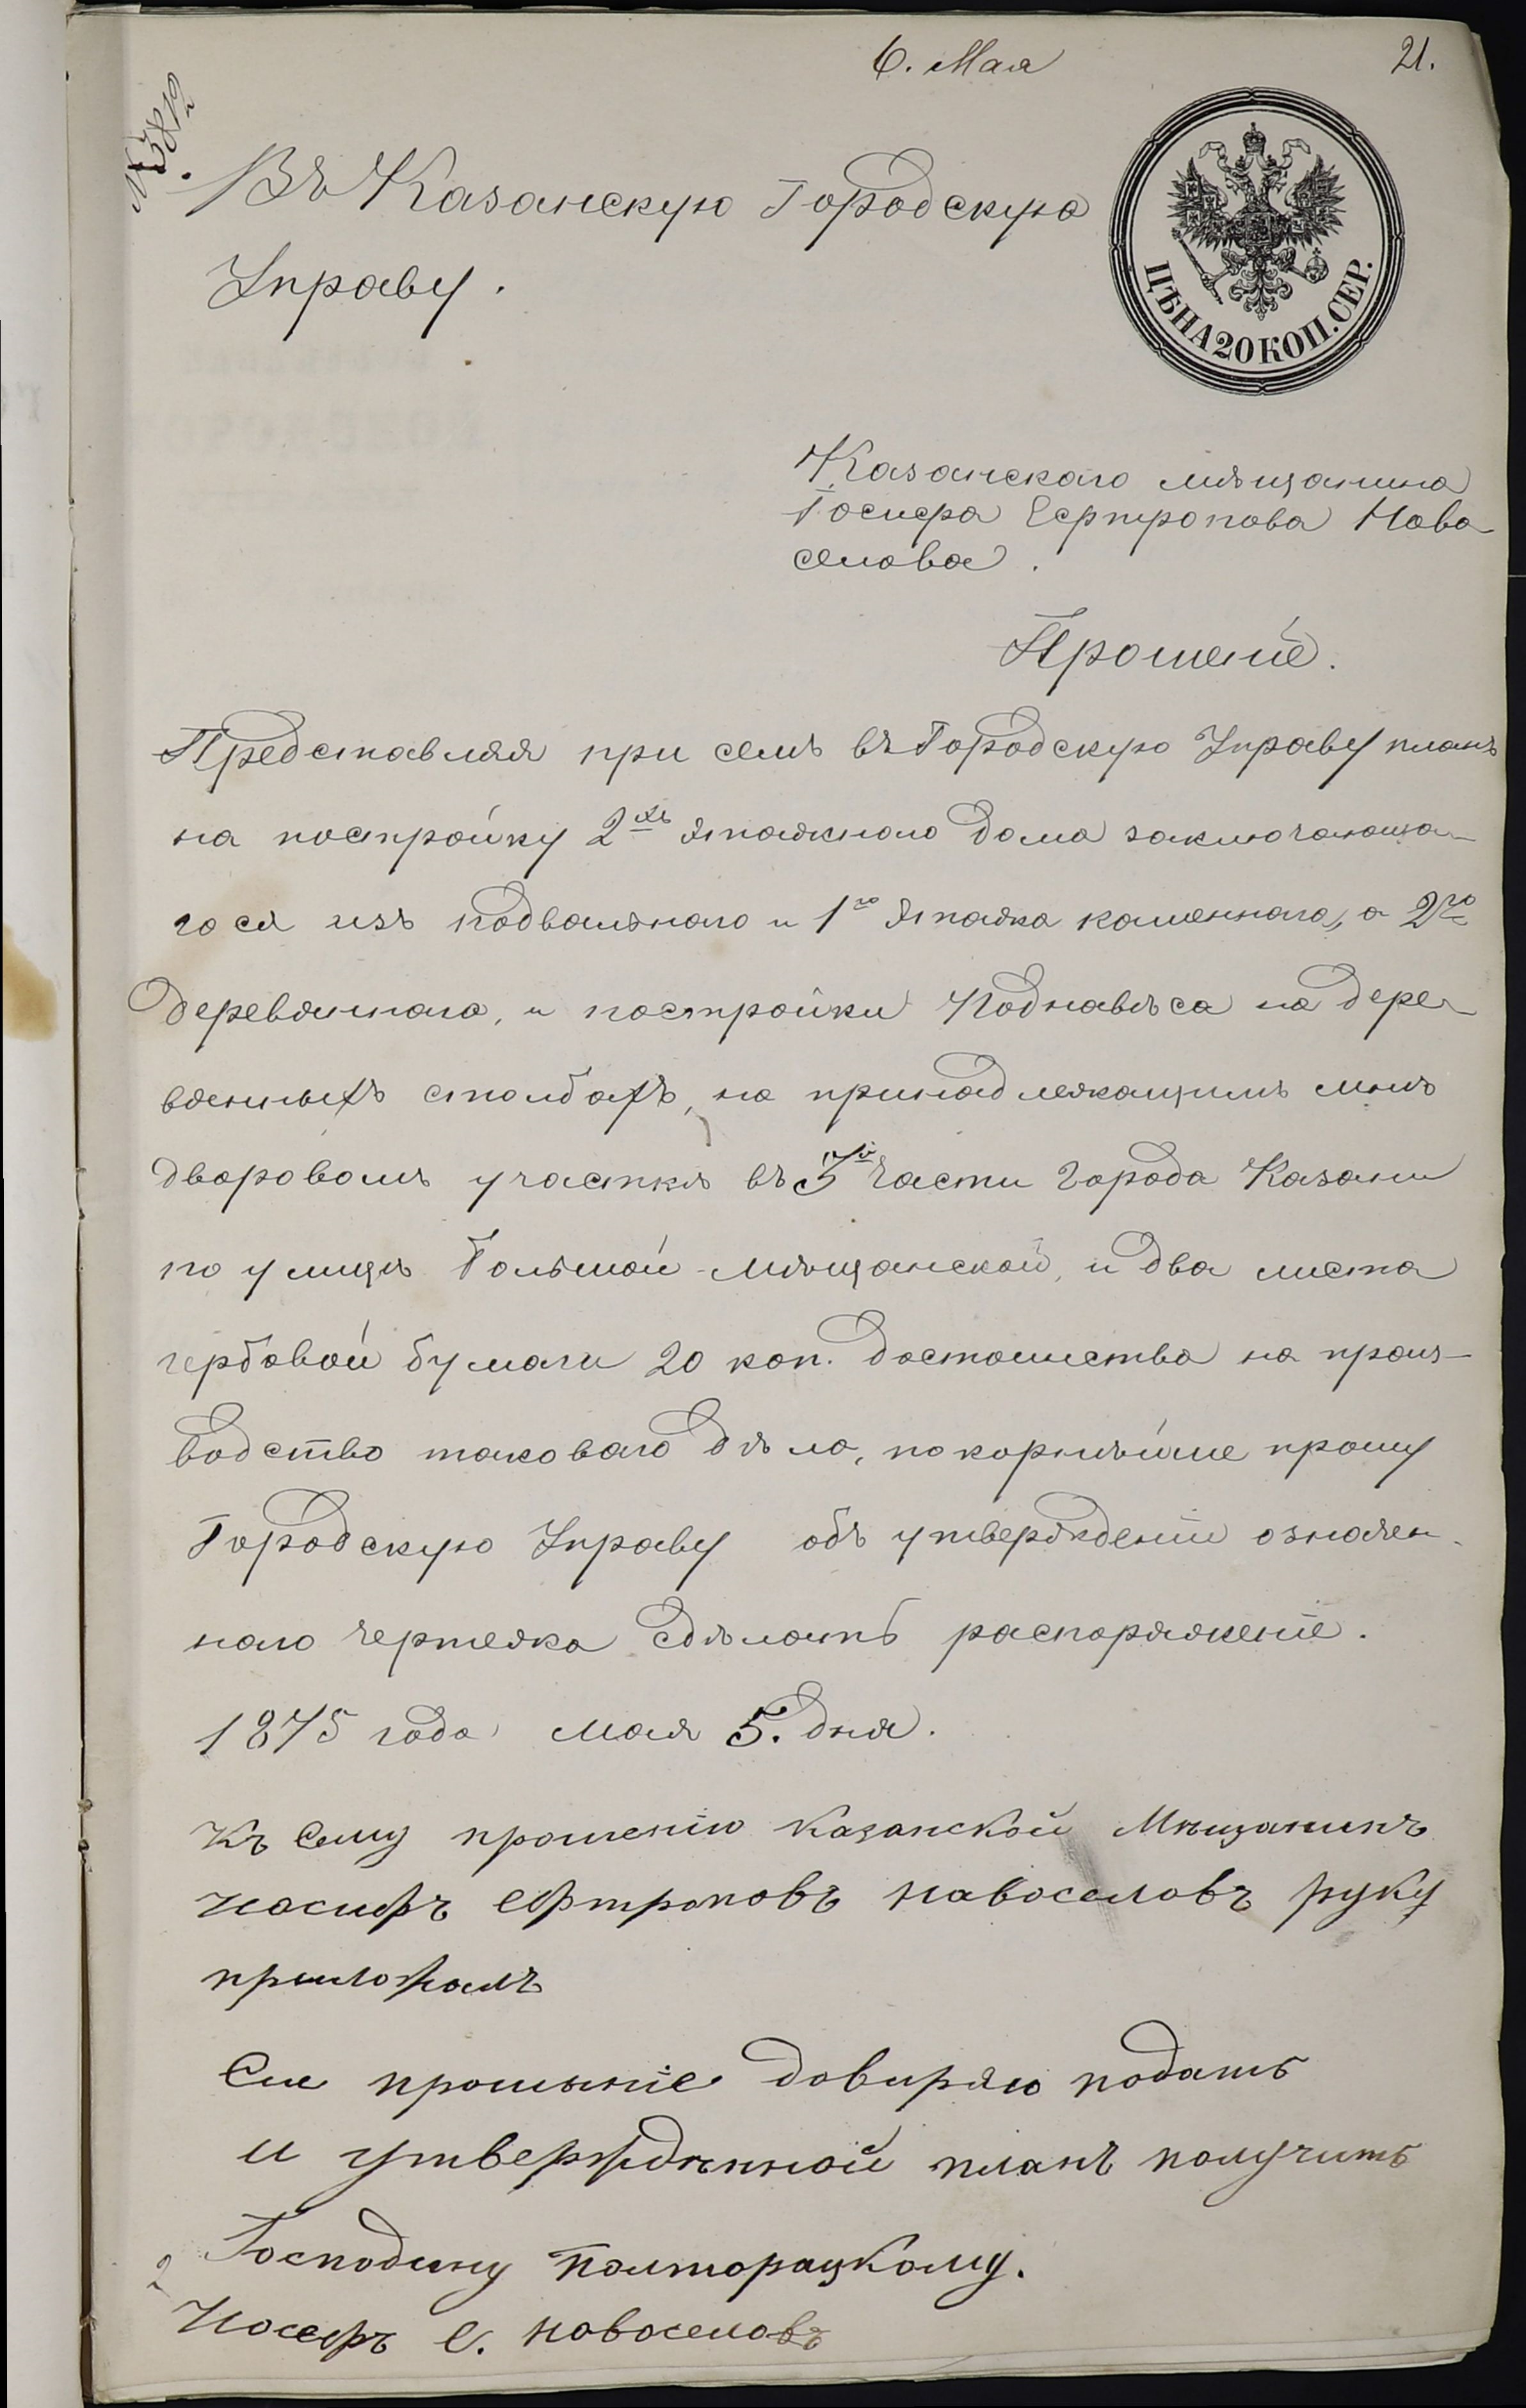 6. Мая
21.
№ 3812
Въ Казанскую Городскую
Управу.
ЦѢНА 20 КОП. СЕР.
Казанского мѣщанина
Госифа Ефтропова Ново
селова.
Прошеніе.
Представляя при семъ въ Городскую Управу планъ
на постройку 2хъ этажного дома заключающа-
гося изъ подвольного и 1го этажа каменного, а 2го
деревянного, и постройки Поднавѣса на дере-
вянныхъ столбахъ, на принадлежащимъ мнѣ
дворовомъ участкѣ въ 5й части города Казани
по улицѣ Большой-Мѣщанской, и два листа
гербовой бумаги 20 коп. достоинства на произ-
водство таковаго дѣла, покорнѣйше прошу
Городскую Управу объ утвержденіи означен-
ного чертежа сдѣлать распоряженіе.
1875 года мая 5. дня.
Къ сему прошенію казанской Мѣщанинъ
иосифъ ефтроповъ новоселовъ руку
приложилъ
Сие прошыніе довиряю подать
и утвержденной планъ получить
Господину Полторацкому.
Иосефъ е. новоселовъ